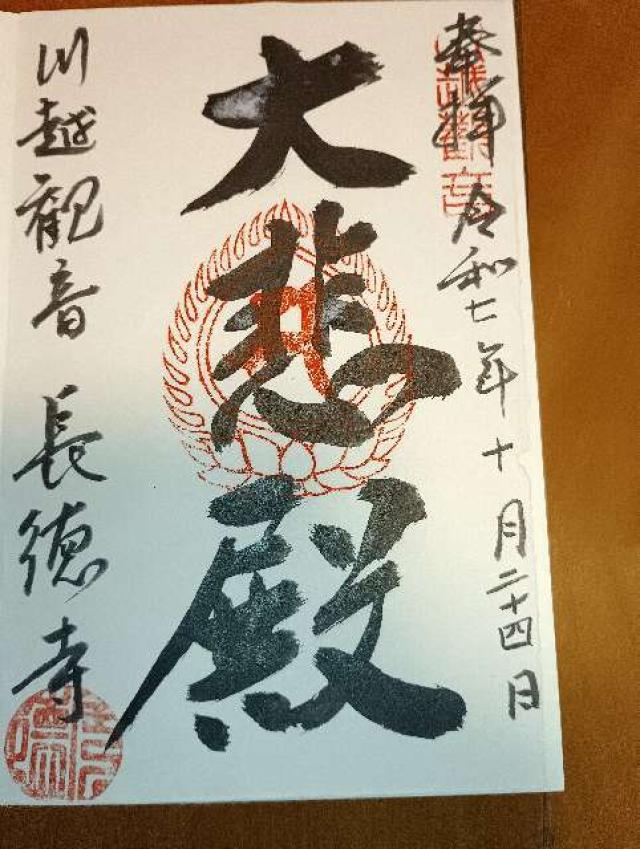 奉拝 令和七年十月二十四日
大悲殿
川越観音 長徳寺
川越観音